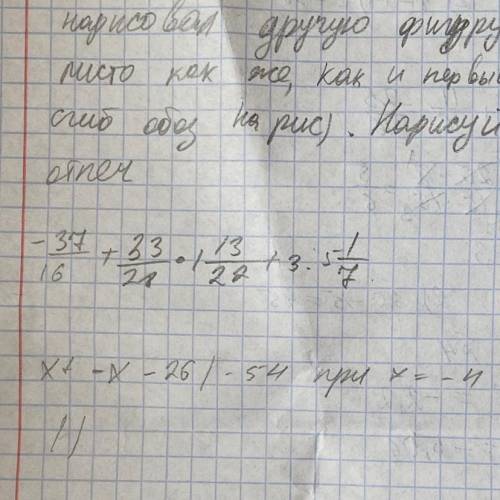 нарисовал другую фигуру
листо как же, как и первы
сгиб обоз на рис). Нарисуй
отпеч
-37/16 + 33/21 · 1 13/22 + 3 : 5 1/7
x + -x - 26 | - 54 при x = -4